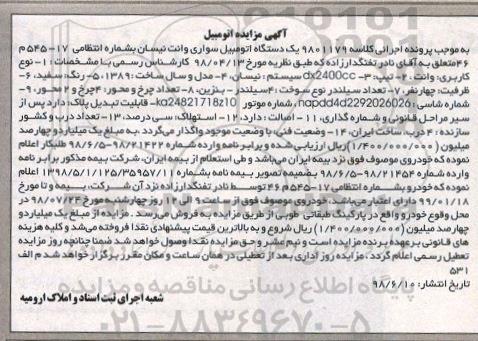 آگهی مزایده اتومبیل
به موجب پرونده اجرائی کلاسه ۹۸۰۱۱۷۹ یک دستگاه اتومبیل سواری وانت نیسان بشماره انتظامی ۱۷-۵۴۵م
۴۶متعلق به آقای نادر تفنگدارزاده که طبق نظریه مورخ ۹۸/۰۴/۱۳ کارشناس رسمی با مشخصات: ۱- نوع
کاربری: وانت ۲- تیپ: dx2400cc ۳-سیستم: نیسان، ۴- مدل و سال ساخت: ۱۳۸۹، ۵- رنگ: سفید، ۶-
ظرفیت: چهار نفر، ۷- تعداد سیلندر نوع سوخت: ۴سیلندر - بنزین، ۸- تعداد چرخ و محور: ۴چرخ و ۲محور، ۹-
شماره شاسی: napdd4d2292026026، شماره موتور ka24821718z10- قابلیت تبدیل پلاک: دارد پس از
سیر مراحل قانونی و شماره گذاری، ۱۱- اصالت: دارد، ۱۲- استهلاک: سی درصد، ۱۳- تعداد درب و کشور
سازنده: ۲درب، ساخت ایران، ۱۴- وضعیت فنی: با وضعیت موجود واگذار می‌گردد. به مبلغ یک میلیارد و چهارصد
میلیون (۱/۴۰۰/۰۰۰/۰۰۰) ریال ارزیابی شده و برابر نامه وارده شماره ۹۸/۶/۵-۹۸/۲۱۴۲۲ طلبکار اعلام
نموده که خودروی موصوف فوق نزد بیمه ایران می‌باشد و طی استعلام از بیمه ایران، شرکت بیمه مذکور برابر نامه
وارده شماره ۹۸/۶/۵-۹۸/۲۱۴۵۴ بضمیمه تصویر بیمه نامه بشماره ۱۳۹۸/۵/۱/۱۲۵/۳۵۹۵۷/۱۱ اعلام
نموده که خودرو بشماره انتظامی ۱۷-۵۴۵م ۴۶ توسط نادر تفنگدارزاده نزد آن شرکت، بیمه و تا مورخ
۹۹/۰۱/۱۸ دارای اعتبار می‌باشد. خودروی موصوف فوق از ساعت ۹ الی ۱۲ روز چهارشنبه مورخ ۹۸/۰۷/۲۴ در
محل وقوع خودرو واقع در پارکینگ طبقاتی طوبی از طریق مزایده به فروش می‌رسد. مزایده از مبلغ یک میلیارد و
چهارصد میلیون (۱/۴۰۰/۰۰۰/۰۰۰) ریال شروع و به بالاترین قیمت پیشنهادی نقدا فروخته می‌شد و کلیه هزینه
های قانونی برعهده برنده مزایده است و نیم عشر و حق مزایده نقدا وصول خواهد شد ضمنا چنانچه روز مزایده
تعطیل رسمی اعلام گردد. مزایده روز اداری بعد از تعطیلی در همان ساعت و مکان مقرر برگزار خواهد شد م الف
۵۳۱
تاریخ انتشار: ۹۸/۶/۱۰
شعبه اجرای ثبت اسناد و املاک ارومیه
پایگاه اطلاع رسانی مناقصه و مزایده
۰۲۱-۸۸۳۴۹۶۷۰-۵